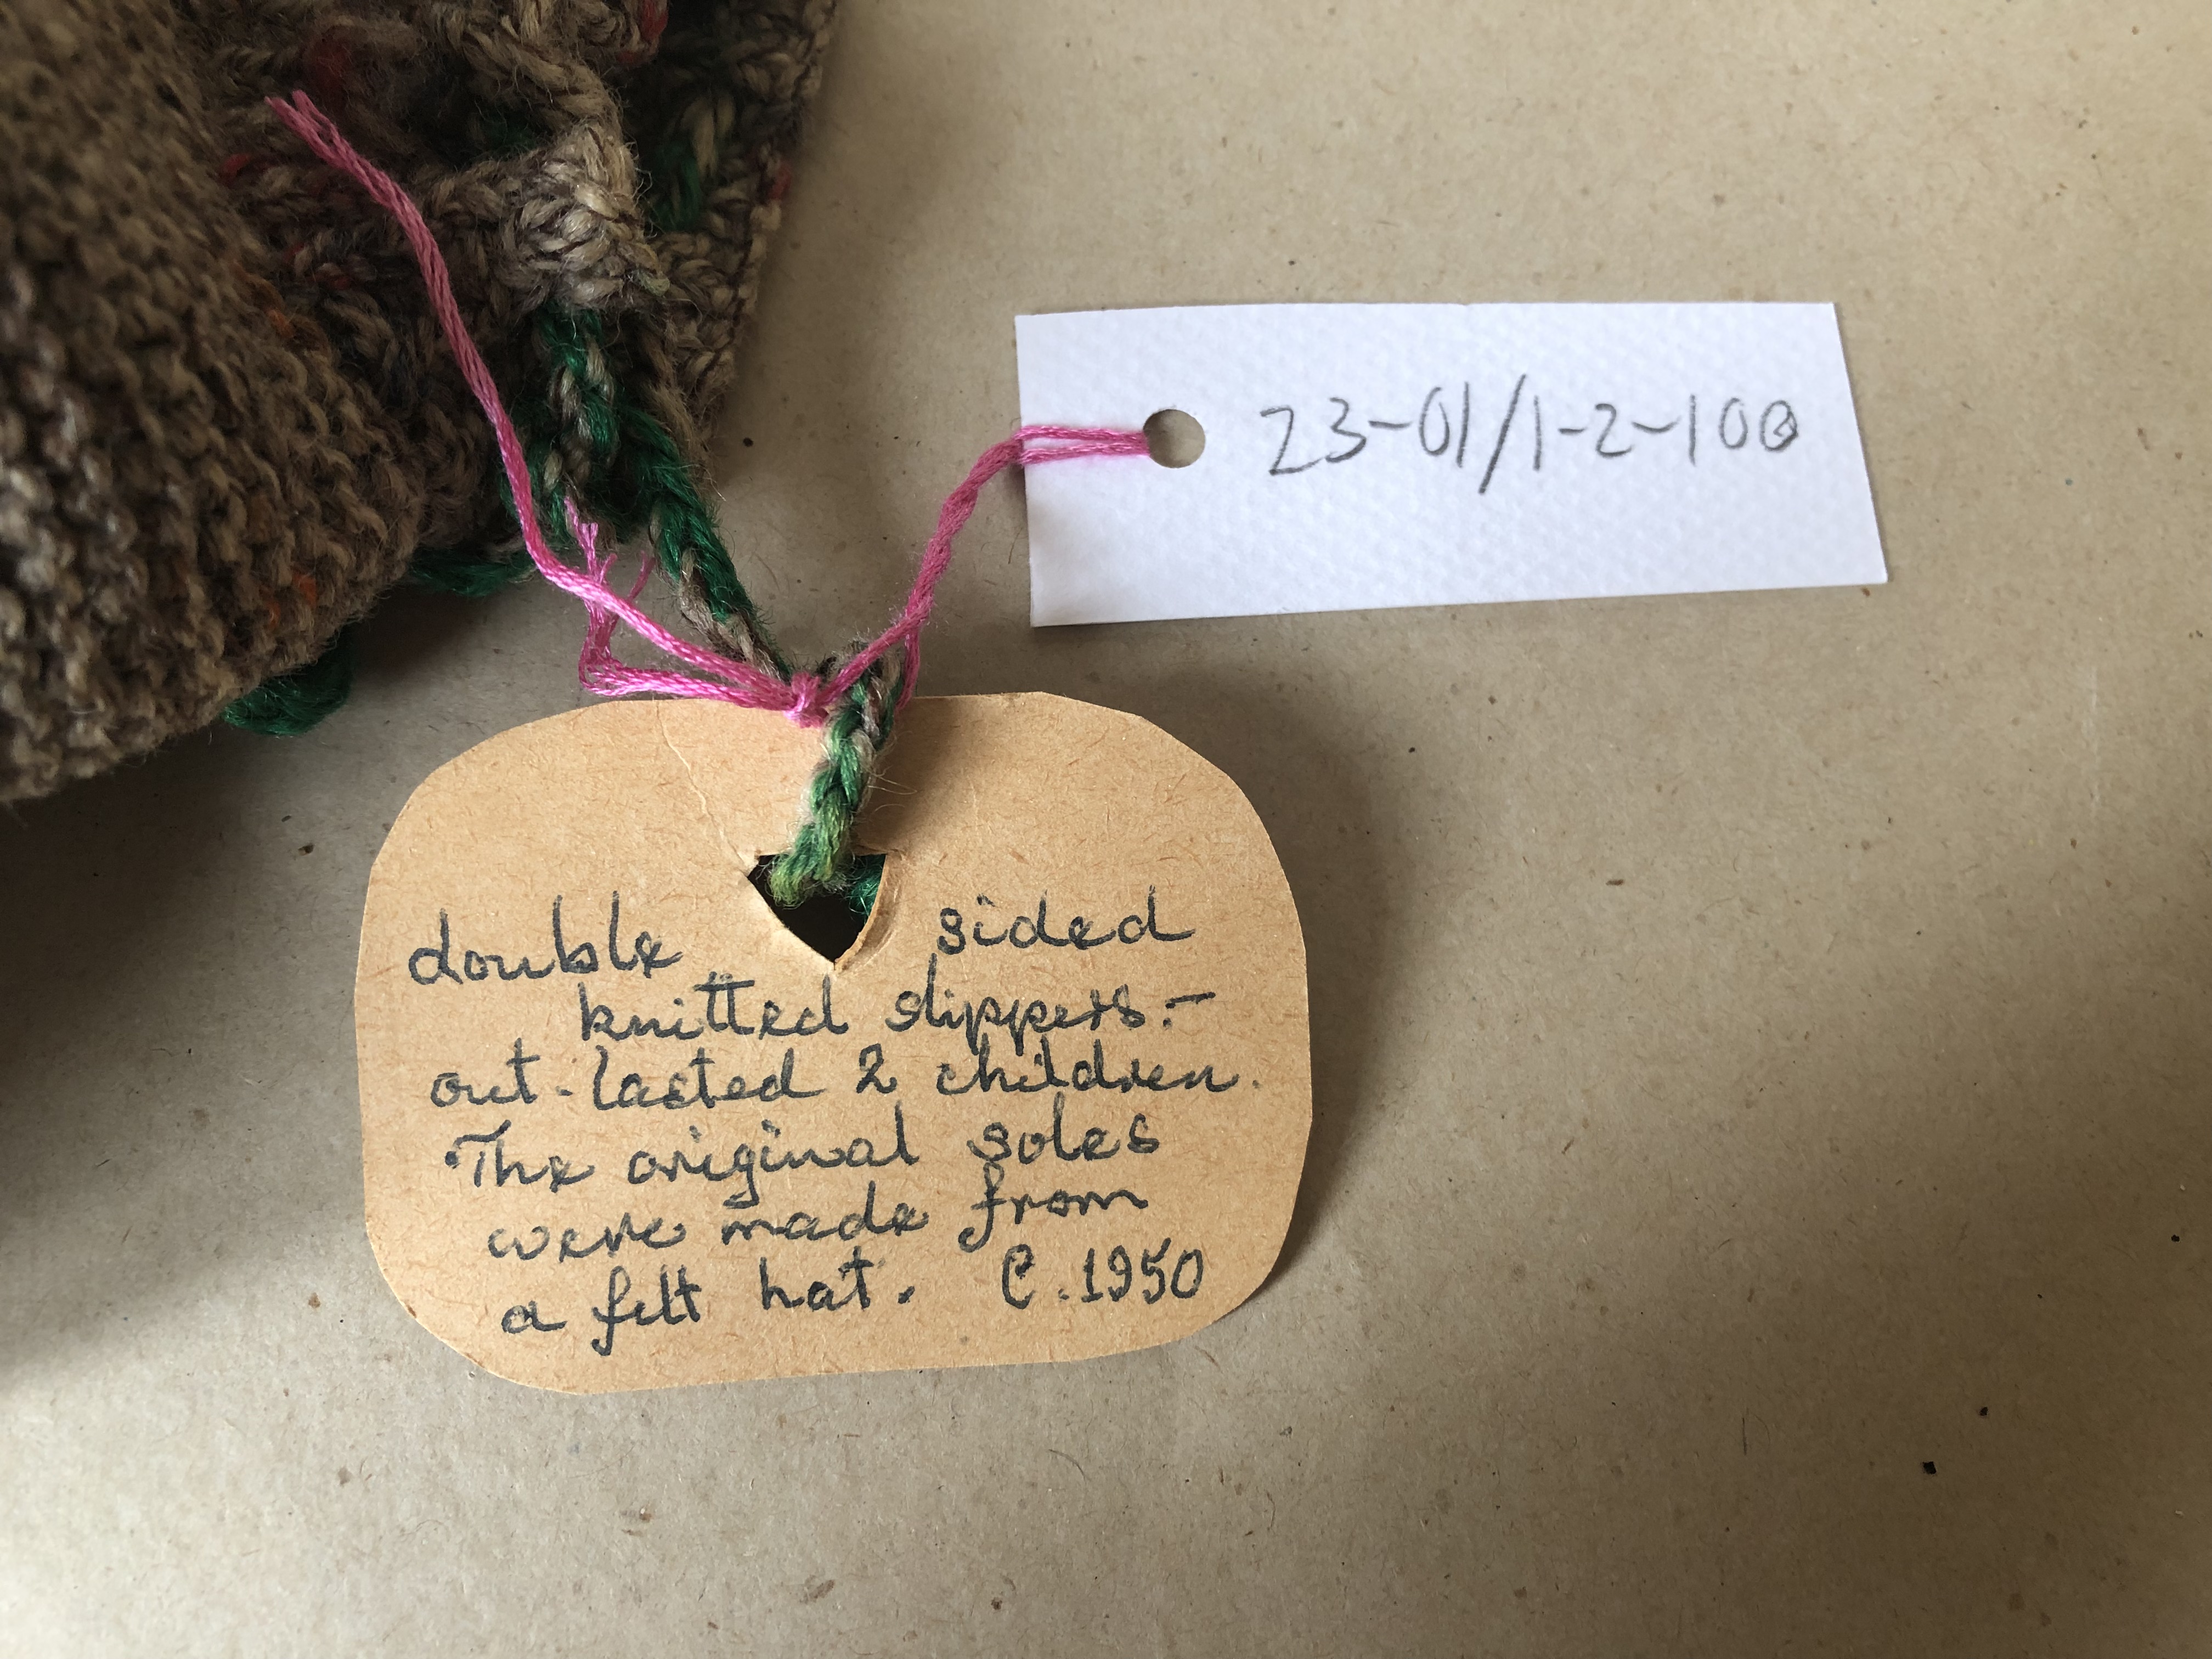 23-01/1-2-100
double sided
knitted slippers:-
out-lasted 2 children.
The original soles
were made from
a felt hat. C.1950